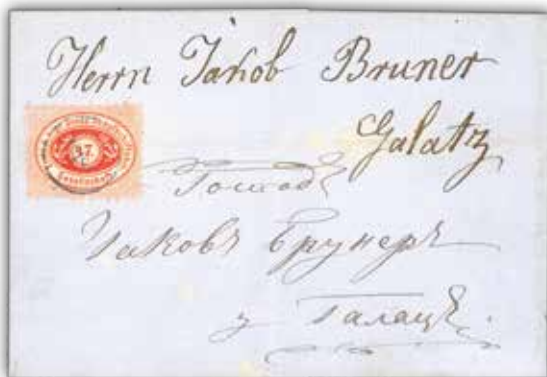 Herrn Jakob Bruner
Galatz
Господ
Јаковъ Брунеръ
у Галацѣ.